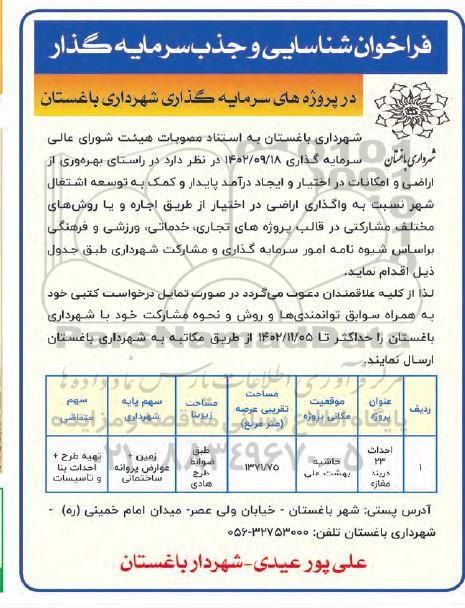 فراخوان شناسایی و جذب سرمایه گذار
در پروژه های سرمایه گذاری شهرداری باغستان
شهرداری باغستان
شهرداری باغستان به استناد مصوبات هیئت شورای عالی
سرمایه گذاری ۱۴۰۲/۰۹/۱۸ در نظر دارد در راستای بهره‌وری از
اراضی و امکانات در اختیار و ایجاد درآمد پایدار و کمک به توسعه اشتغال
شهر نسبت به واگذاری اراضی در اختیار از طریق اجاره و یا روش‌های
مختلف مشارکتی در قالب پروژه های تجاری، خدماتی، ورزشی و فرهنگی
براساس شیوه نامه امور سرمایه گذاری و مشارکت شهرداری طبق جدول
ذیل اقدام نماید.
لذا از کلیه علاقمندان دعوت می‌گردد در صورت تمایل درخواست کتبی خود
به همراه سوابق توانمندی‌ها و روش و نحوه مشارکت خود با شهرداری
باغستان را حداکثر تا ۱۴۰۲/۱۱/۰۵ از طریق مکاتبه به شهرداری باغستان
ارسال نمایند.
ParsNamadData
ردیف عنوان پروژه موقعیت مکانی پروژه مساحت تقریبی عرصه (متر مربع) مساحت زیربنا سهم پایه شهرداری سهم متقاضی
۱ احداث ۲۳ دربند مغازه حاشیه بهشت علی ۱۳۷۱/۷۵ طبق ضوابط طرح هادی زمین + عوارض پروانه ساختمانی تهیه طرح + احداث بنا و تأسیسات
۰۲۱-۸۸۳۴۹۶۷۰-۵
آدرس پستی: شهر باغستان - خیابان ولی عصر- میدان امام خمینی (ره) -
شهرداری باغستان تلفن: ۳۲۷۵۳۰۰۰-۰۵۶
علی پور عیدی-شهردار باغستان